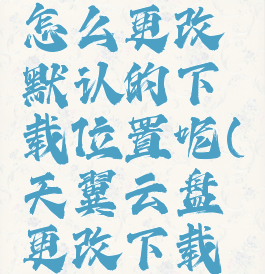 怎么更改
默认的下
载位置呢(
天翼云盘
更改下载